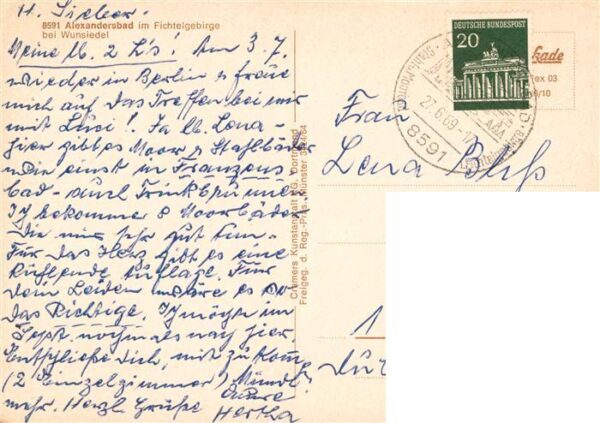 H. Sieber.
8591 Alexandersbad im Fichtelgebirge
bei Wunsiedel
Meine lb. 2 L's! Am 3. 7.
wieder in Berlin u. freue
mich auf das Treffen bei mir
mit Lüsi! Ja lb. Lena-
hier gibt es Moor u. Stahlbäder
wie einst in Franzens
bad - auch Trinkbrunnen
Ich bekomme 8 Moorbäder
die mir sehr gut tun.
Für das Herz gibt es eine
Auflage. Für
dein Leiden wäre es
das Richtige. Ich möchte im
Sept. nochmals nach hier.
Entschließe Dich, mit zu kom
(2 Einzelzimmer) Mündl.
mehr. Herzl. Grüße Eure
Hertha
Cramers Kunstanstalt KG, Dortmund
Freigeg. d. Reg.-Präs. Münster
DEUTSCHE BUNDESPOST
20
27.6.69
8591
Frau
Lena Buß
1